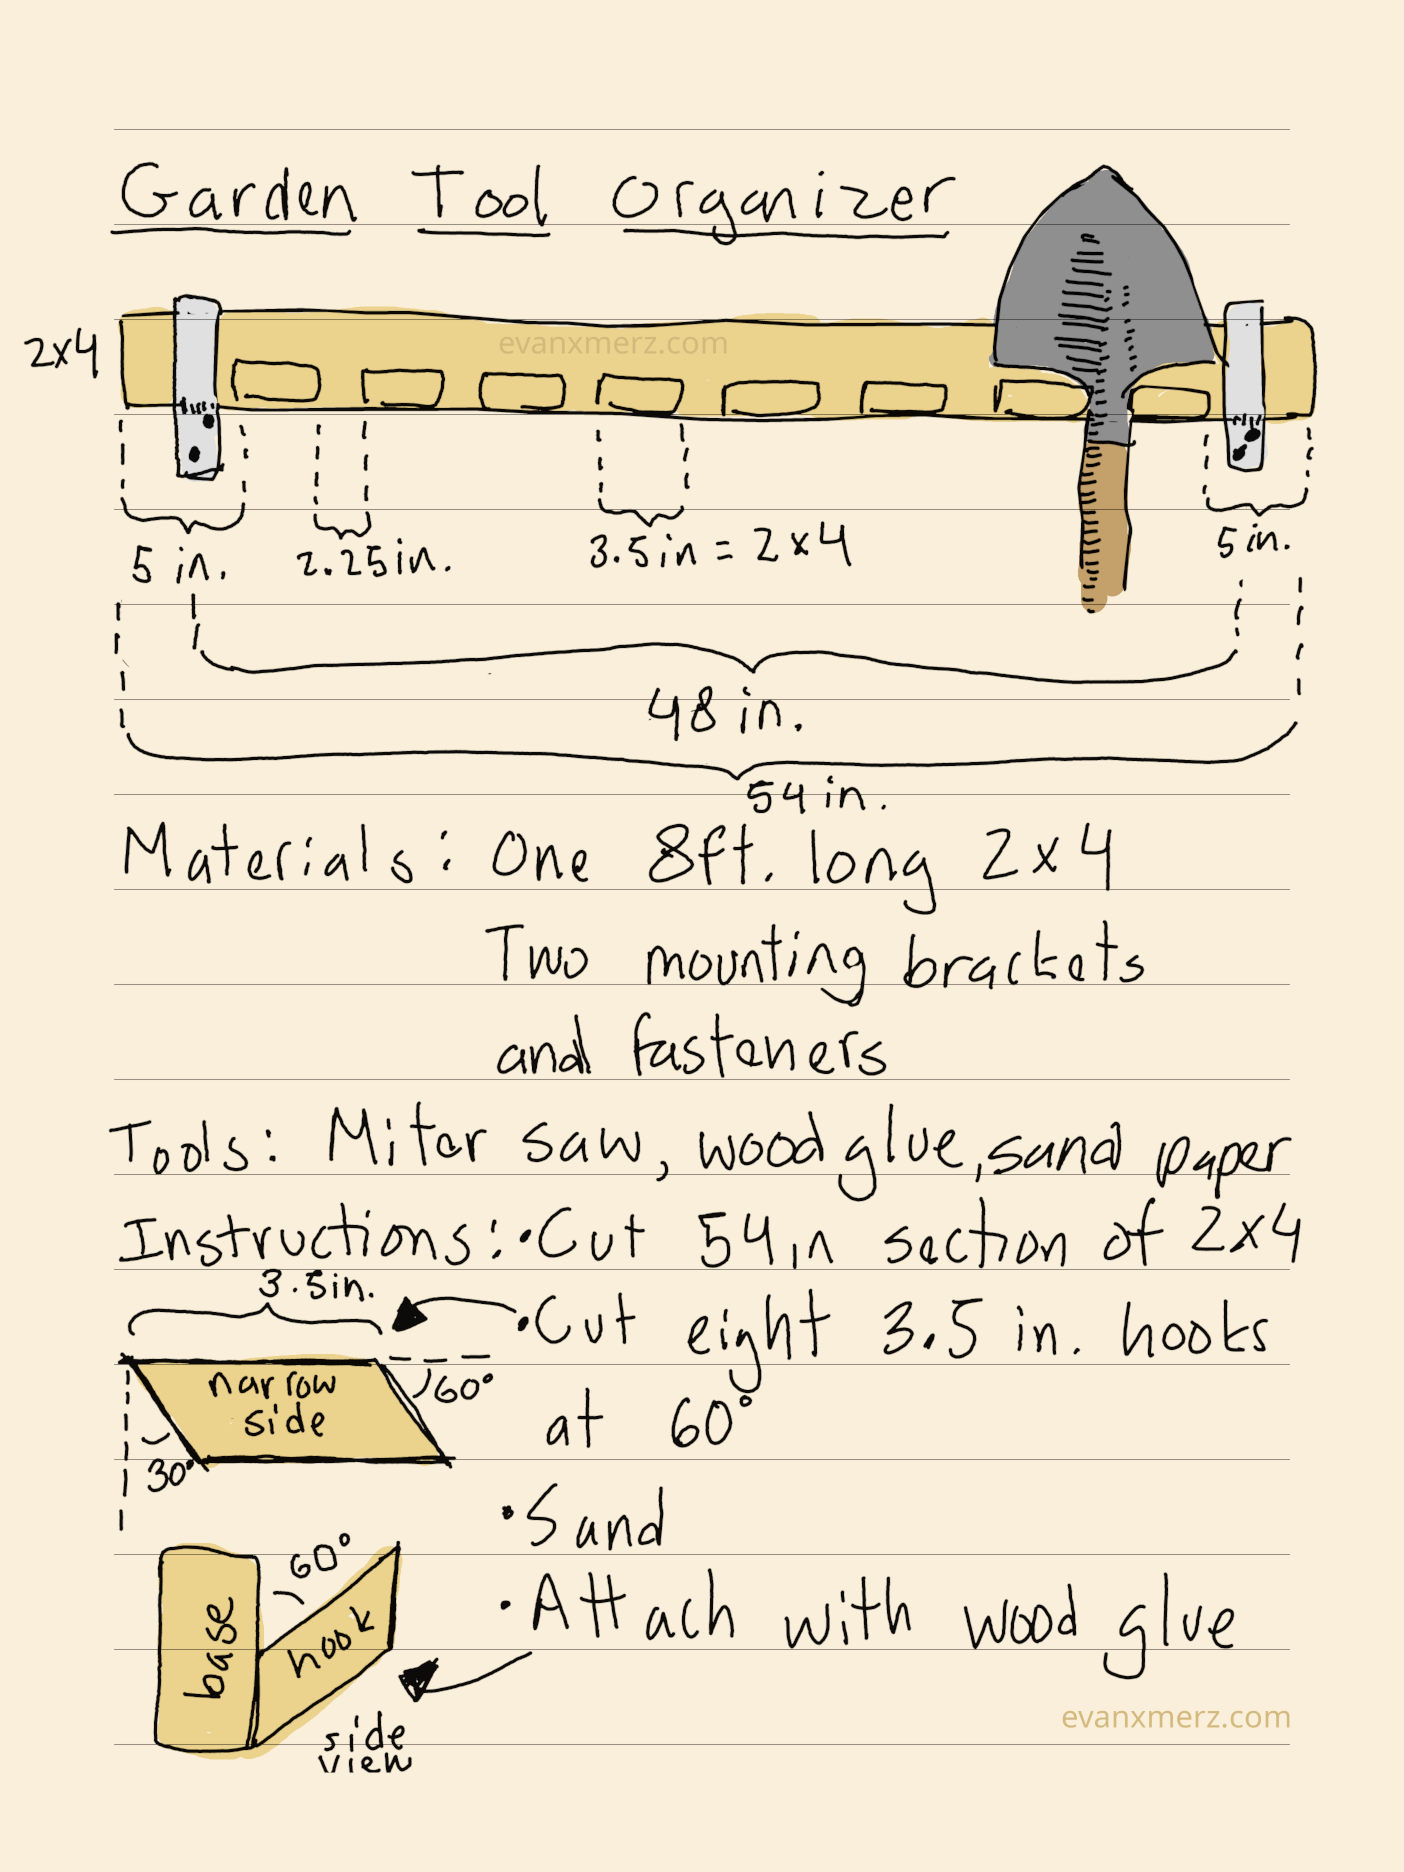 Garden Tool Organizer
2x4
evanxmerz.com
5 in.
2.25in.
3.5in = 2x4
5 in.
48 in.
54 in.
Materials: One 8ft. long 2x4
Two mounting brackets
and fasteners
Tools: Miter saw, wood glue, sand paper
Instructions: •Cut 54in section of 2x4
3.5in.
•Cut eight 3.5 in. hooks
at 60°
narrow
side
60°
30°
•Sand
60°
base
hook
•Attach with wood glue
side
view
evanxmerz.com